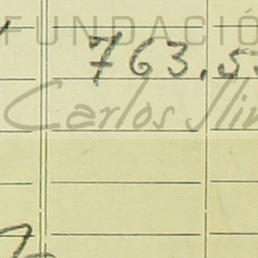 FUNDACIÓ
763.5
Carlos Slim